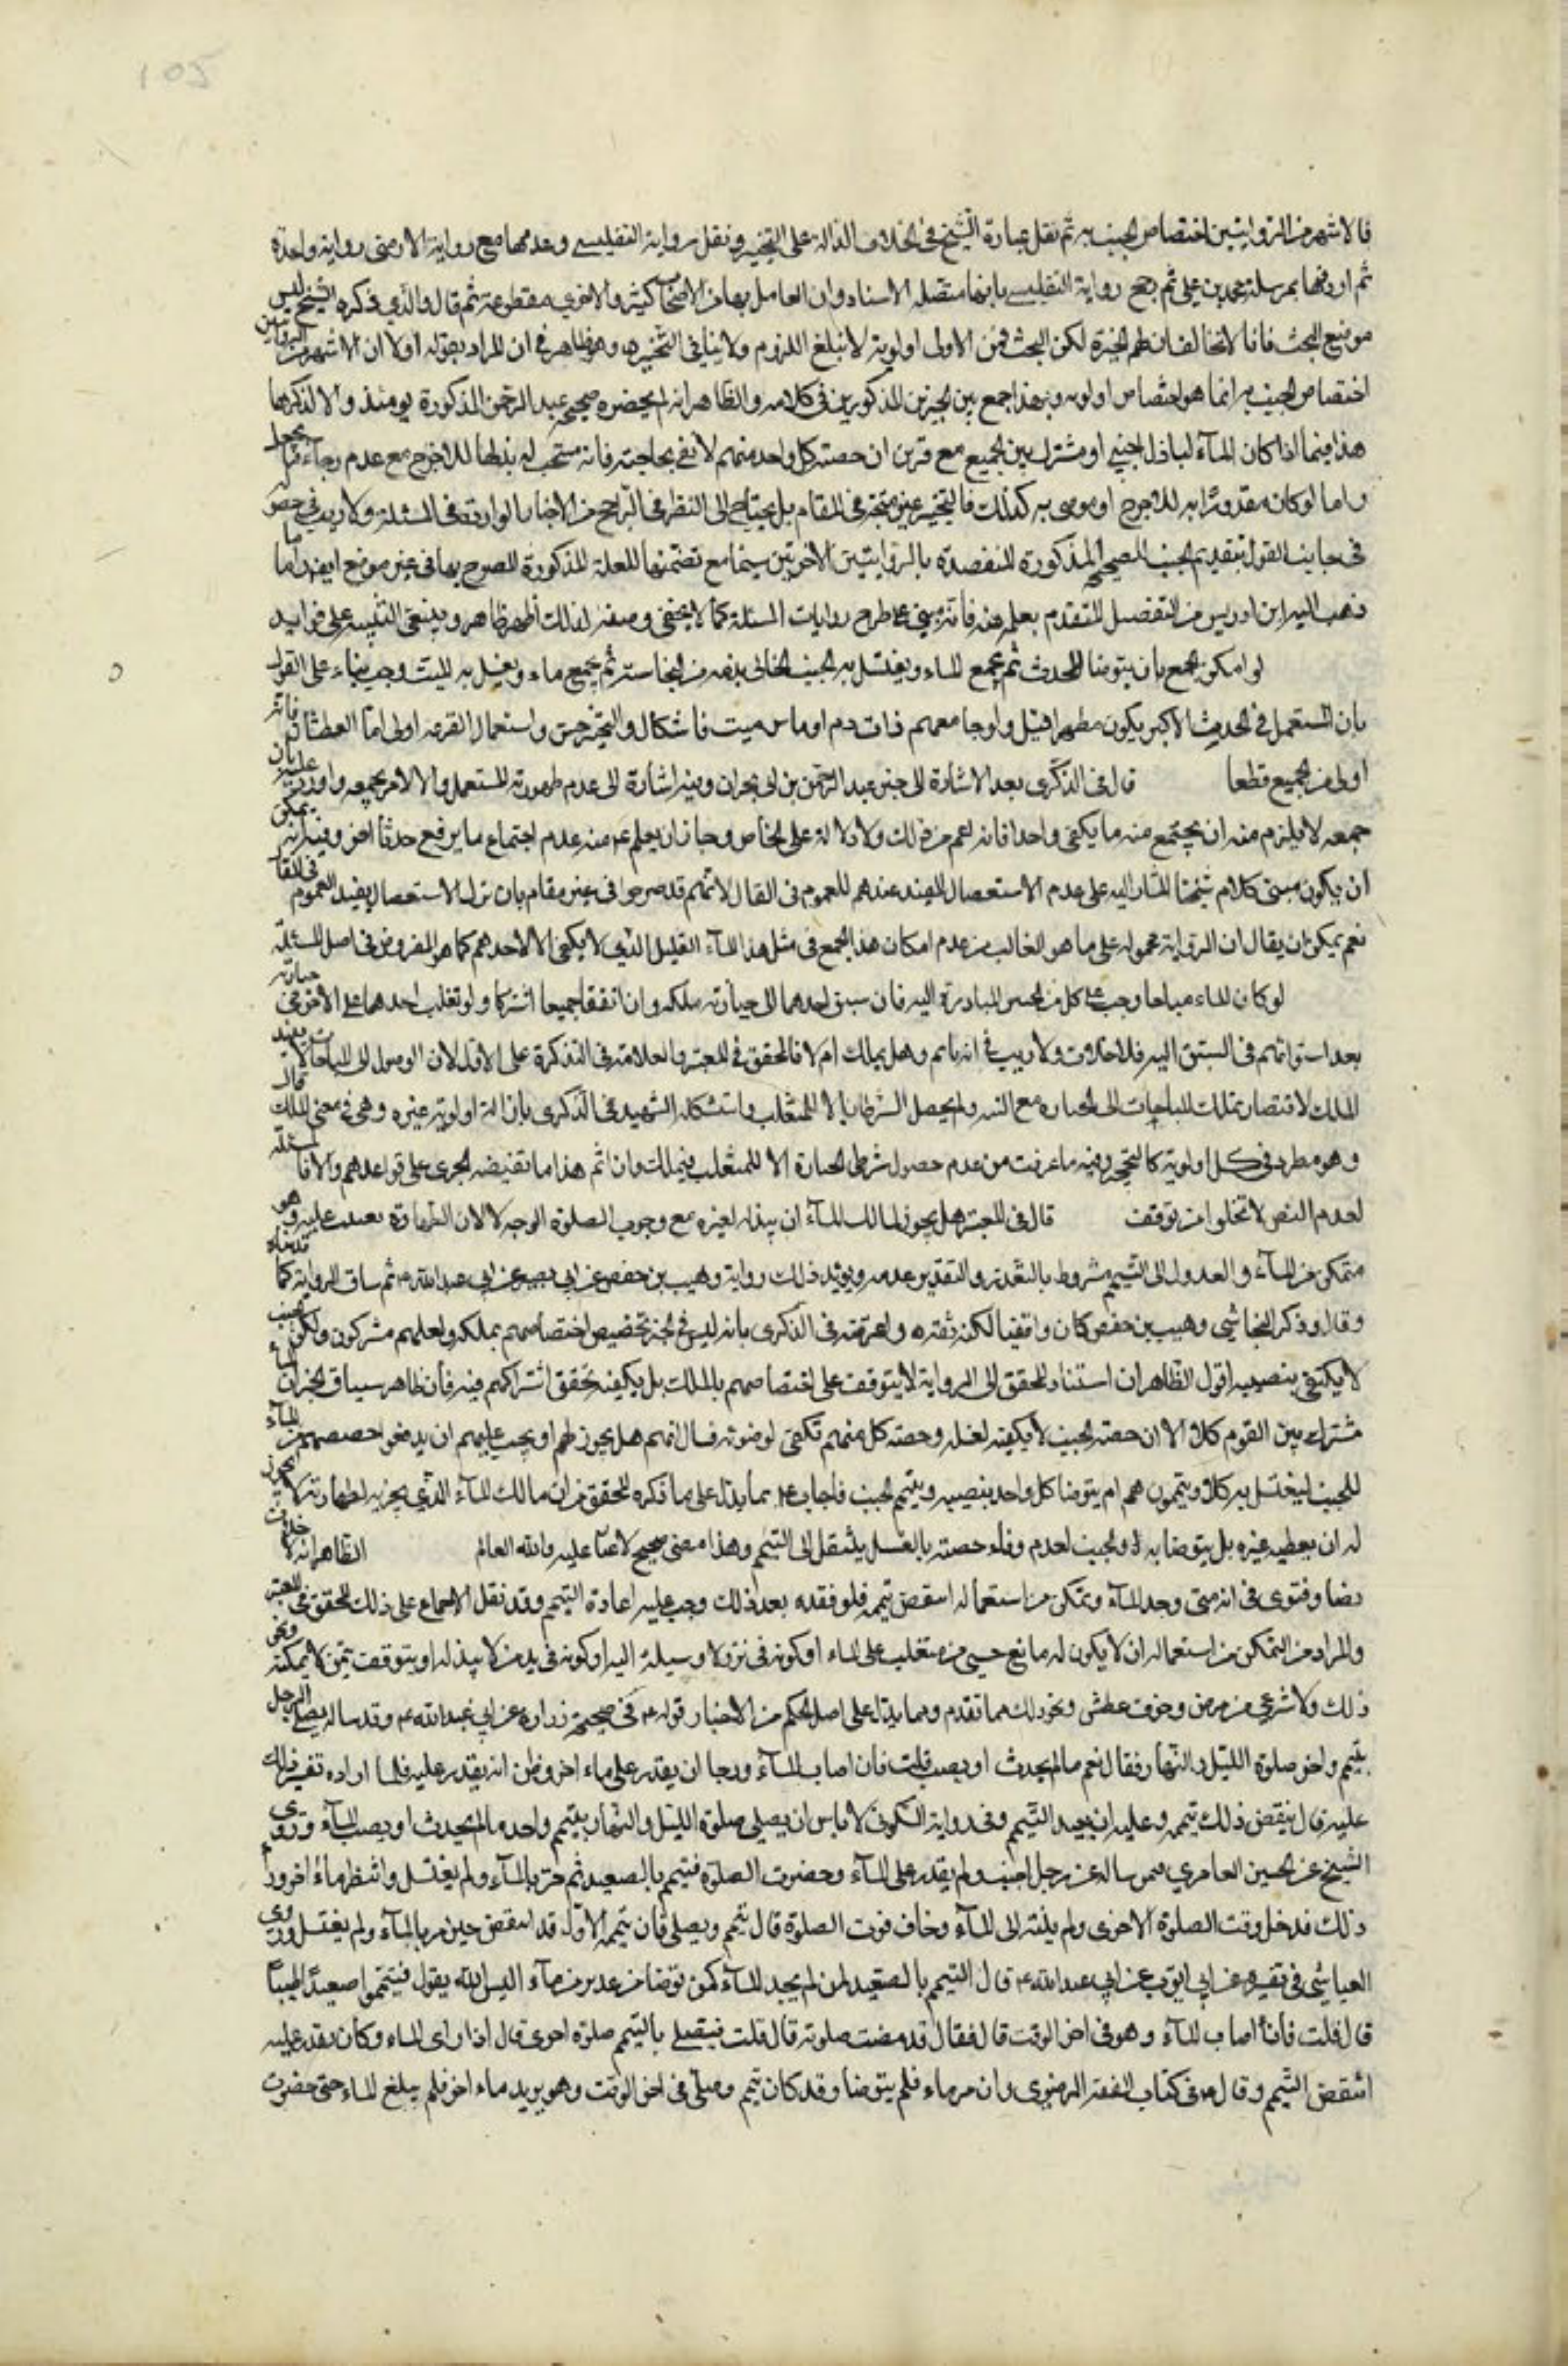 105
فالاشهر من الروايتين اختصاص الجنب به ثم نقل عبارة الشيخ في الخلاف الدالة على التخيير ونقل رواية التفليسي وعدها مع رواية الارمني رواية واحدة
ثم اردفها بمرسلة محمد بن علي ثم رجح رواية التفليسي بانها متصلة الاسناد وان العامل بها من الاصحاب كثير والاخرى مقطوعة ثم قال والذي ذكره الشيخ ليس
موضع البحث فانا لا نخالف ان لهم الخيرة لكن البحث في من الاولى اولوية لا تبلغ اللزوم ولا ينافي التخيير وهو ظاهر في ان المراد بقوله اولا ان الاشهر من الروايتين
اختصاص الجنب به انما هو اختصاص اولوية وبهذا جمع بين الخبرين المذكورين في كلامه والظاهر انه لم يحضره صحيحة عبد الرحمن المذكورة يومئذ والا لذكرها
هذا فيما اذا كان الماء لباذل اجنبي او مشترك بين الجميع مع فرض ان حصة كل واحد منهم لا تفي بحاجته فانه يستحب له بذلها للاحوج مع عدم رجاء
واما لو كان مقدورا به للاحوج او موصى به كذلك فالتخيير غير متجه في المقام بل يحتاج الى النظر في الراجح من الاخبار الواردة في المسئلة ولا ريب في
في جانب القول بتقديم الجنب للصحيحة المذكورة المنعضدة بالروايتين الاخريين سيما مع تضمنها للعلة المذكورة المصرح بها في غير موضع ايضا واما ما
ذهب اليه ابن ادريس من التفصيل المتقدم بعلم منه فانه مبني على طرح روايات المسئلة كما لا يخفى وضعفه لذلك اظهر ظاهر وينبغي التنبيه على فوائد
لو امكن الجمع بان يتوضأ المحدث ثم يجمع الماء ويغتسل به الجنب الخالي بدنه من النجاسة ثم يجمع ماءه ويغسل به الميت وجب بناء على القول
بان المستعمل في الحدث الاكبر يكون مطهرا قيل ولو جامعهم ذات دم او ماس ميت فاشكال والتخيير حسن واستعمال القرعة اولى اما العطشان فانه
اولى من الجميع قطعا قال في الذكرى بعد الاشارة الى خبر عبد الرحمن بن ابي نجران وفيه اشارة الى عدم طهورية المستعمل والا لامر بجمعه واورد عليه بان
جمعه لا يلزم منه ان يجتمع منه ما يكفي واحدا فانه اعم من ذلك ولا دلالة على الخاص وجاز ان يعلم ع منه عدم اجتماع ما يرفع حدثا اخر وفيه انه يمكن
ان يكون مبنى كلام شيخنا المشار اليه على عدم الاستفصال المفيد عندهم للعموم في المقال لانهم قد صرحوا في غير مقام بان ترك الاستفصال يفيد العموم في المقال
نعم يمكن ان يقال ان الرواية محمولة على ما هو الغالب من عدم امكان هذا الجمع في مثل هذا الماء القليل الذي لا يكفي الا لاحدهم كما هو المفروض في اصل المسئلة
لو كان الماء مباحا وجب على كل من الخمس المبادرة اليه فان سبق احدهما الى حيازته ملكه وان اتفقا جميعا اشتركا ولو تغلب احدهما على الاخر في حيازته
بعد استوائهم في السبق اليه فلا خلاف ولا ريب في انه ياثم وهل يملك ام لا فالمحقق في المعتبر والعلامة في التذكرة على الاول لان الوصول الى المباحات لا يفيد
الملك لافتقار تملك المباحات الى الحيازة مع النية ولم يحصل الشرطان الا للمتغلب واستشكله الشهيد في الذكرى بازالة اولوية غيره وهي في معنى الملك قال
وهو مطرد في كل اولوية كالتحجير وفيه ما عرفت من عدم حصول شرطي الحيازة الا للمتغلب فيملك وان اثم هذا ما تقتضيه الجري على قواعدهم والا فالمسئلة
لعدم النص لا تخلوا من توقف قال في المعتبر هل يجوز لمالك الماء ان يبذله لغيره مع وجوب الصلوة الوجه لا لان الطهارة تعينت عليه وهو
متمكن من الماء والعدول الى التيمم مشروط بالتعذر والتقدير عدمه ويؤيد ذلك رواية وهيب بن حفص عن ابي بصير عن ابي عبد الله ع ثم ساق الرواية كما قدمناه
وقال وذكر النجاشي وهيب بن حفص كان واقفيا لكنه ثقة واعترضه في الذكرى بانه ليس في الخبر تخصيص اختصاصهم بملكه ولعلهم مشركون ولكن الجنب
لا يكتفي بنصيبه اقول الظاهر ان استناد المحقق الى الرواية لا يتوقف على اختصاصهم بالملك بل يكفيه تحقق اشتراكهم فيه فان ظاهر سياق الخبر ان الماء
مشترك بين القوم كلا الا ان حصة الجنب لا يكفيه لغسله وحصة كل منهم تكفي لوضوئه فسال انهم هل يجوز لهم او يجب عليهم ان يدفعوا حصصهم من الماء
للجنب ليغتسل به كلا ويتيممون هم ام يتوضأ كل واحد بنصيبه ويتيمم الجنب فاجاب ع بما يدل على ما ذكره المحقق من ان مالك الماء الذي يجزيه لطهارته لا يجوز
له ان يعطيه غيره بل يتوضأ به والجنب لعدم وفاء حصته بالغسل ينتقل الى التيمم وهذا معنى صحيح لا غبار عليه والله العالم الظاهر انه لا خلاف
نصا وفتوى في انه متى وجد الماء وتمكن من استعماله انتقض تيممه فلو فقده بعد ذلك وجب عليه اعادة التيمم وقد نقل الاجماع على ذلك المحقق في المعتبر
والمراد من التمكن من استعماله ان لا يكون له مانع حسي من متغلب على الماء او كونه في بئر ولا وسيلة اليه او كونه في يد من لا يبذله او يتوقف بثمن لا يمكنه ونحو
ذلك ولا شرعي من مرض وخوف عطش ونحو ذلك مما تقدم ومما يدل على اصل الحكم من الاخبار قوله ع في صحيحة زرارة عن ابي عبد الله ع وقد ساله يصلي الرجل
بتيمم واحد صلوة الليل والنهار فقال نعم ما لم يحدث او يصب قلت فان اصاب الماء ورجا ان يقدر على ماء اخر وظن انه يقدر عليه فلما اراده تعسر ذلك
عليه قال ينقض ذلك تيممه وعليه ان يعيد التيمم وفي رواية السكوني لا باس ان يصلي صلوة الليل والنهار بتيمم واحد ما لم يحدث او يصب الماء وروى
الشيخ عن الحسين العامري عمن ساله عن رجل اجنب ولم يقدر على الماء وحضرت الصلوة فتيمم بالصعيد ثم مر بالماء ولم يغتسل وانتظر ماء اخر وراء
ذلك فدخل وقت الصلوة الاخرى ولم ينته الى الماء وخاف فوت الصلوة قال يتيمم ويصلي فان تيممه الاول قد انتقض حين مر بالماء ولم يغتسل وروى
العياشي في تفسيره عن ابي ايوب عن ابي عبد الله ع قال التيمم بالصعيد لمن لم يجد الماء كمن توضأ من غدير من ماء اليس الله يقول فتيمموا صعيدا طيبا
قال قلت فان اصاب الماء وهو في اخر الوقت قال فقال قد مضت صلوته قال قلت فيصلي بالتيمم صلوة اخرى قال اذا راى الماء وكان يقدر عليه
انتقض التيمم وقال ع في كتاب الفقه الرضوي وان مر بماء فلم يتوضأ وقد كان تيمم وصلى في اخر الوقت وهو يريد ماء اخر فلم يبلغ الماء حتى حضرت